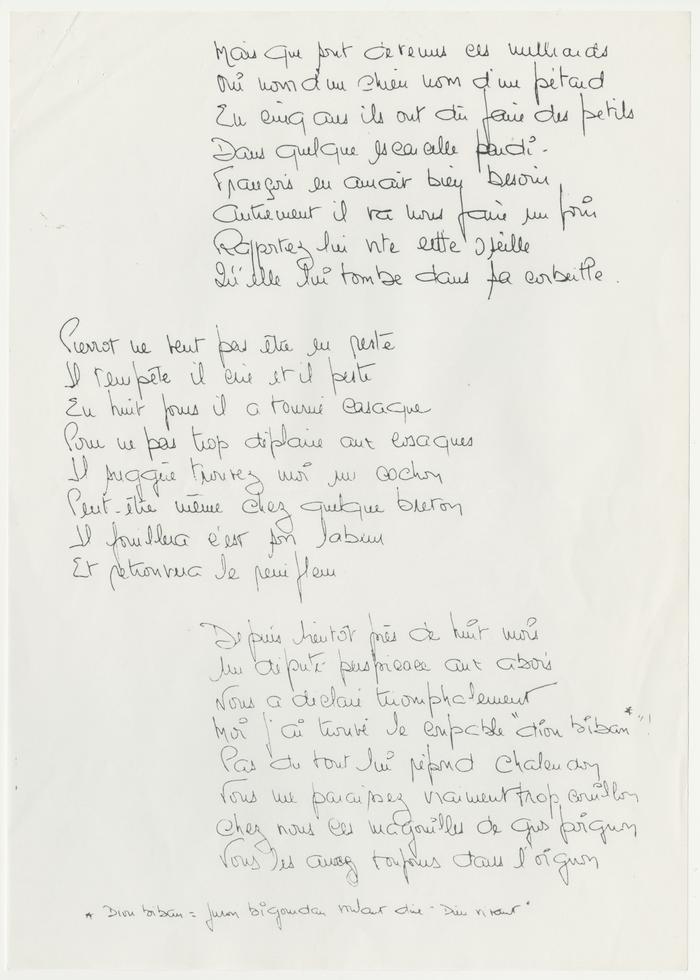 Mais que sont devenus ces milliards
Oui nom d'un chien nom d'un pétard
En cinq ans ils ont dû faire des petits
Dans quelque escarcelle pardi.
François en aurait bien besoin
Autrement il va nous faire un foin
Rapportez lui vite cette oseille
Qu'elle lui tombe dans sa corbeille.
Pierrot ne veut pas être en reste
Il tempête il crie et il peste
En huit jours il a tourné casaque
Pour ne pas trop déplaire aux cosaques
Il suggère trouvez moi un cochon
Peut-être même chez quelque breton
Il fouillera c'est son labeur
Et retrouvera le renifleur
Depuis bientôt près de huit mois
Un député perspicace aux abois
Nous a déclaré triomphalement
Moi j'ai trouvé le coupable "dion biban"*!
Pas du tout lui répond Chalendon
Vous me paraissez vraiment trop couillon
Chez nous ces magouilles de gros pognon
Vous les avez toujours dans l'oignon
* Dion biban = juron bigouden voulant dire "Dieu vivant"